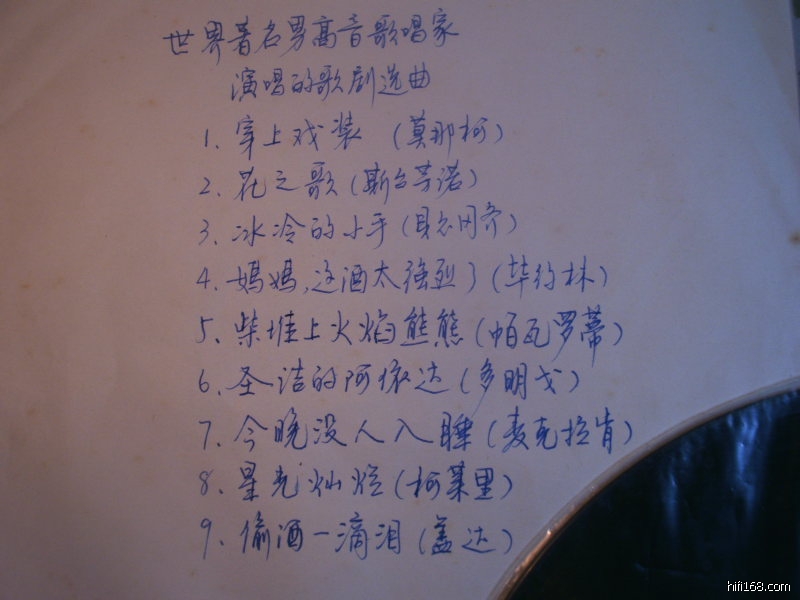 世界著名男高音歌唱家
演唱的歌剧选曲
1. 穿上戏装 (莫那柯)
2. 花之歌 (斯台芳诺)
3. 冰冷的小手 (贝尔冈齐)
4. 妈妈,这酒太强烈了 (毕约林)
5. 柴堆上火焰熊熊 (帕瓦罗蒂)
6. 圣洁的阿依达 (多明戈)
7. 今晚没人入睡 (麦克拉肯)
8. 星光灿烂 (柯莱里)
9. 偷洒一滴泪 (盖达)
hifi168.com